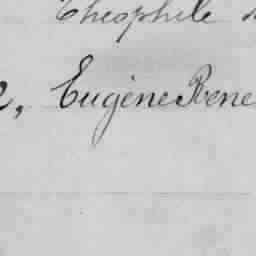 Théophile
e, Eugène Rene